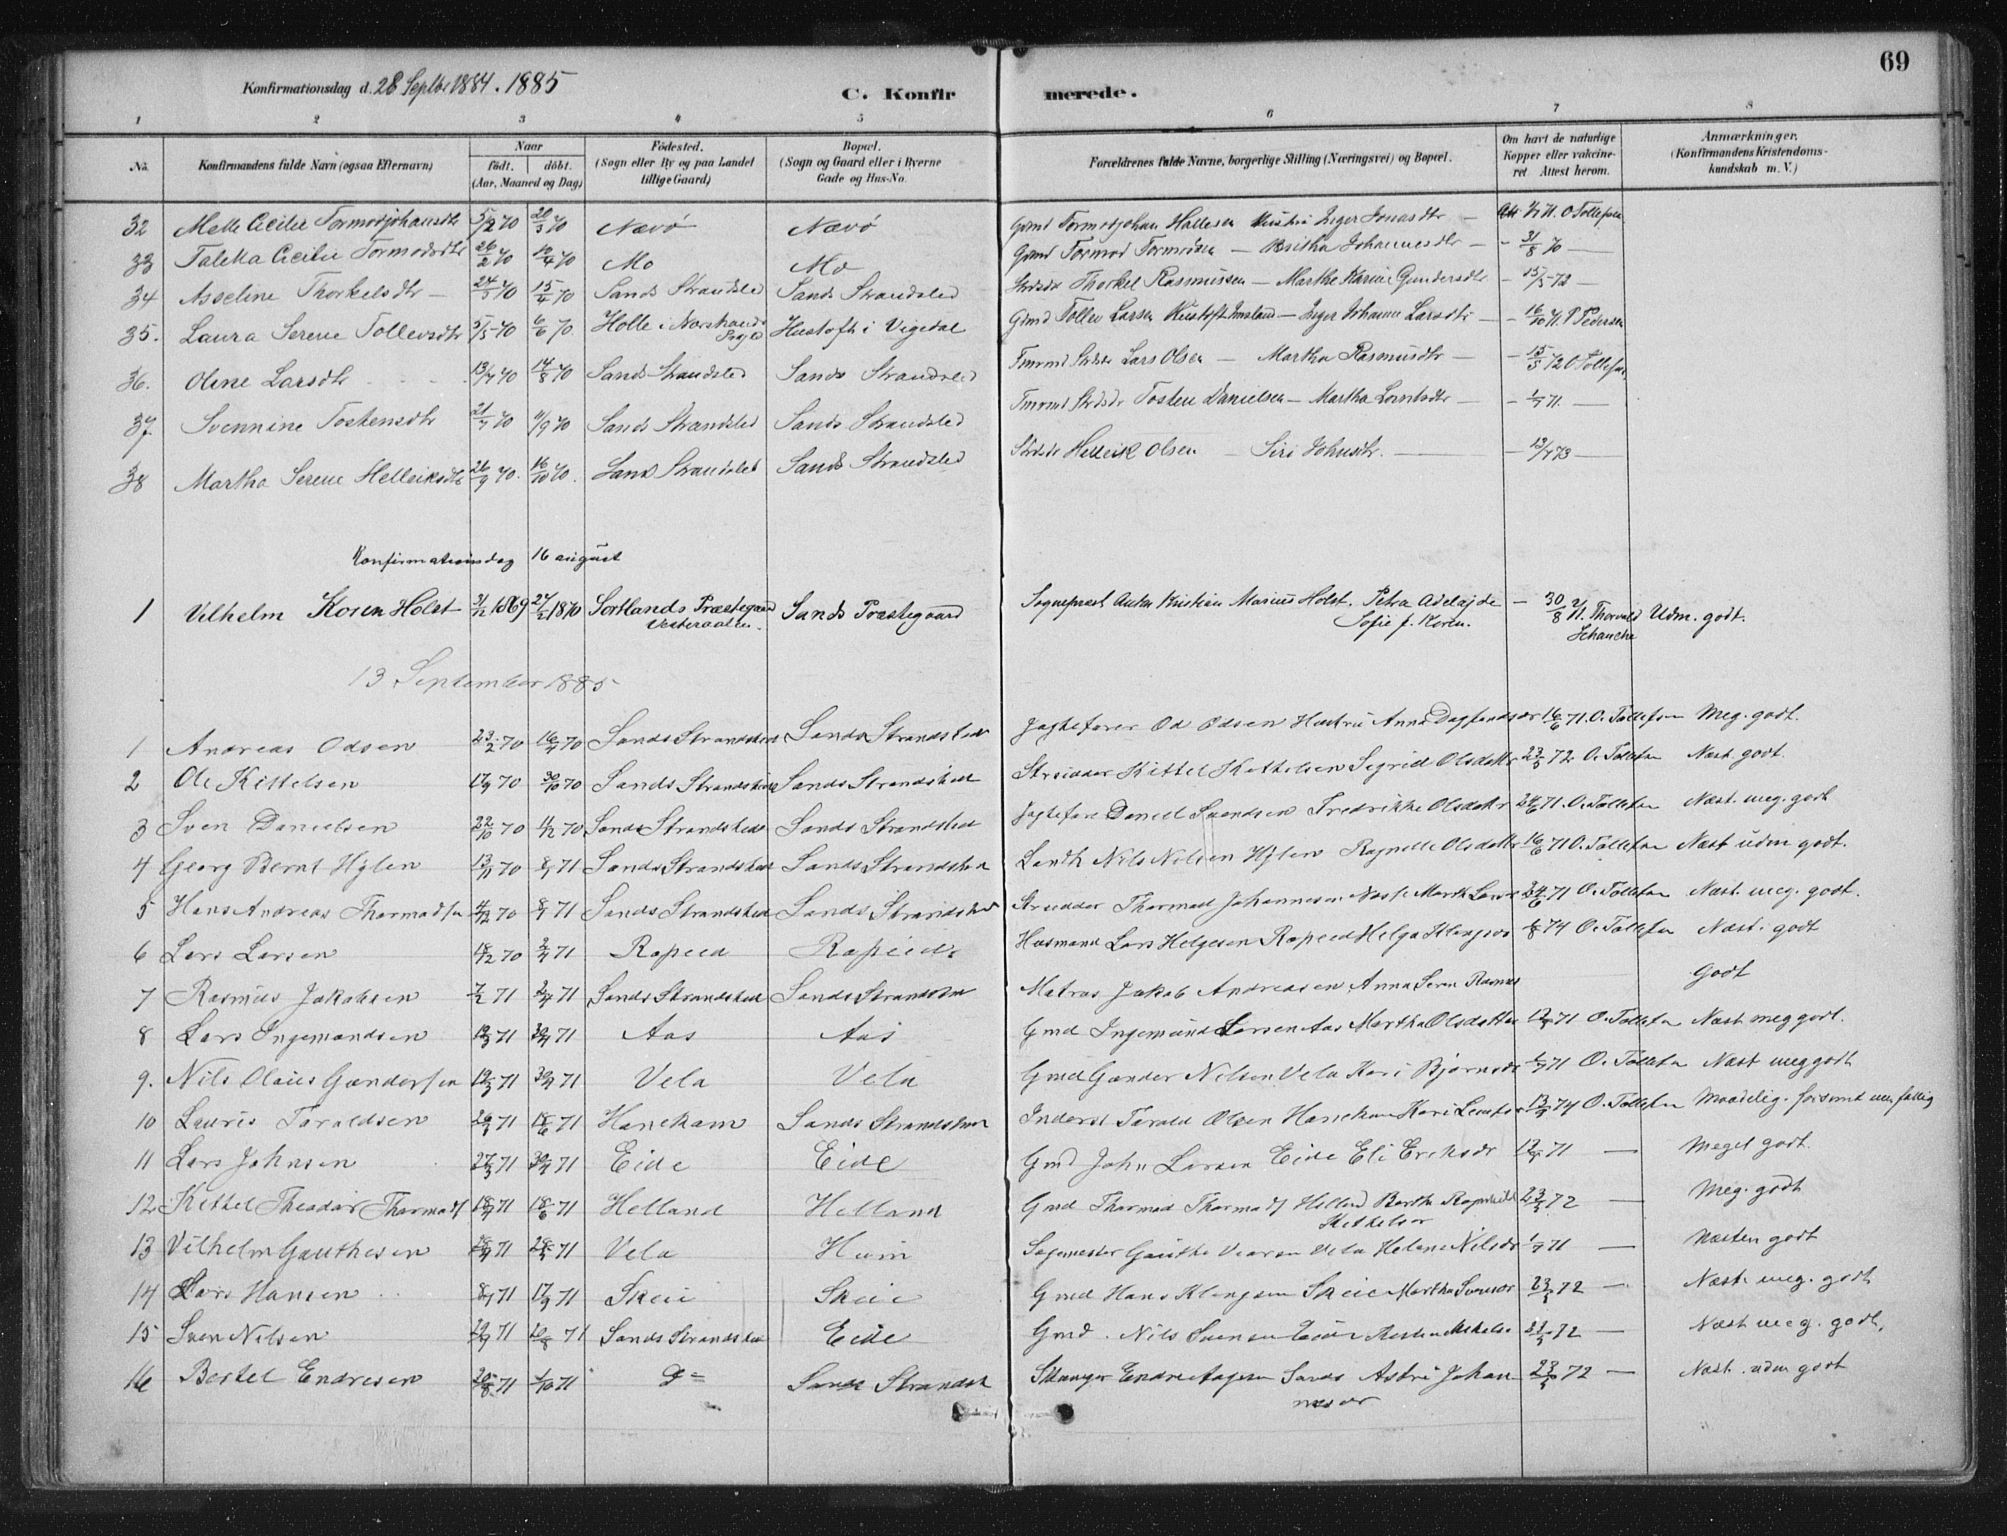 69
Konfirmationsdag d. 28 Septbr 1884. 1885
C. Konfirmerede.
1 2 3 4 5 6 7 8
No. Konfirmandens fulde Navn (ogsaa Efternavn) Naar født. døbt. (Aar, Maaned og Dag) Fødested. (Sogn eller By og paa Landet tillige Gaard) Bopæl. (Sogn og Gaard eller i Byerne Gade og Hus-No. Forældrenes fulde Navne, borgerlige Stilling (Næringsvei) og Bopæl. Om havt de naturlige Kopper eller vakcineret Attest herom. Anmærkninger, (Konfirmandens Kristendomskundskab m. V.)
32 Mette Cecilie Tormodjohansdtr 5/2 70 20/3 70 Nævø Nævø Gmd Tormodjohan Hallesen Hustru Inger Jonasdtr — 1/7 71. O Tollefsen
33 Taletta Cecilie Tormodsdtr 26/2 70 10/4 70 Mo Mo Gmd Tormod Tormodsen — Britha Johannesdtr — - 31/8 70 —
34 Asseline Thorkelsdtr — 24/3 70 15/4 70 Sands Strandsted Sands Strandsted Strdsdr Thorkel Rasmussen — Marthe Karine Gundersdtr - 15/5 72 —
35. Laura Serene Tollevsdtr 5/5 70 6/6 70. Holle i Norstrands Sogld Hustoft i Vigedal Gmd Tollev Larsen Hustoft Imsland — Inger Johanne Larsdtr — - 16/10 71. P Pedersen
36. Oline Larsdtr 13/7 70 14/8 70 Sands Strandsted Sands Strandsted Fmrmd Strdsdr Lars Olsen — Martha Rasmusdtr — - 15/5 72 O Tollefsen
37 Svennine Tostensdtr 21/7 70 11/9 70 Sands Strandsted Sands Strandsted Fmrmd Strdsdr Tosten Danielsen — Martha Larsdtr — - 1/7 71. —
38 Martha Serene Helleiksdtr 26/9 70. 16/10 70. Sands Strandsted Sands Strandsted Strdsdr Helleik Olsen — Siri Johnsdtr. — - 13/7 73 —
Konfirmationsdag 16 august
1 Vilhelm Koren Holst 31/12 1869 27/2 1870 Sortlands Præstegaard Vesteraalen. Sands Præstegaard Sogneprest Anton Kristian Marius Holst. Petra Adelajde Sofie f. Koren. — 30/8 71. Thorvald Schanche Udm. godt.
13 September 1885
1 Andreas Odsen 23/2 70 16/4 70 Sands Strandsted Sands Strandsted Jagtefører Od Odsen Hustru Anna Dagfinds dr 16/6 71. O. Tollefsen Meg. godt.
2 Ole Kittelsen 17/9 70 30/10 70 Sands Strandsted Sands Strandsted Strsidder Kittel Kittelsen Sigrid Olsdatter 23/5 72 O. Tollefsen Næst. godt.
3 Sven Danielsen 22/10 70 4/12 70 Sands Strandsted Sands Strandsted Jagtefører Daniel Svendsen Fredrikke Olsdatr 24/6 71. O. Tollefsen Næst. meg. godt
4 Georg Bernt Hylen 13/11 70 8/1 71 Sands Strandsted Sands Strandsted Landh Nils Nilsen Hylen Ragnille Olsdatter 16/6 71 O. Tollefsen Næst udm godt.
5 Hans Andreas Thormodsen 4/12 70 8/1 71 Sands Strandsted Sands Strandsted Strsidder Thormod Johannesen 24/6 71 O. Tollefsen Næst. meg. godt.
6 Lars Larsen 18/12 70 2/4 71 Ropeid Ropeid. Husmand Lars Helgesen Ropeid Helga 4/8 74 O. Tollefsen Næst. godt
7 Rasmus Jakobsen 7/2 71 2/4 71 Sands Strandsted Sands Strandsted Matros Jakob Andreasen Anna Seren Rasmus Godt
8 Lars Ingemundsen 19/3 71 30/4 71 Aas Aas Gmd Ingemund Larsen Aas Martha Olsdatter 12/7 71 O. Tollefsen Næst meg godt.
9. Nils Olaus Gundersen 19/3 71 30/4 71 Vela Vela Gmd Gunder Nilsen Vela Kari Bjørnsdr 1/7 71 O. Tollefsen Næst meg godt
10 Lauris Taraldsen 29/3 71 18/6 71 Hanekam Sands Strandsted Inderst Tarald Olsen Hanekam Kari 13/5 74 O. Tollefsen Maadelig.
11 Lars Johnsen 27/3 71 30/4 71 Eide Eide Gmd John Larsen Eide Eli Eriksdr 12/7 71 — Meget godt.
12 Kittel Theodor Thormods 18/4 71 18/6 71 Helland Helland Gmd Thormod Thormods Helland Bertha Ragnhild Kittelsdr 23/5 72 — Meg. godt
13 Vilhelm Gauthesen 28/4 71 28/5 71 Vela Hum Sagmester Gauthe Vela Helene Nilsdr 1/7 71 — Næsten godt
14 Lars Hansen 8/7 71 17/9 71 Skeie Skeie Gmd Hans Klengsen Skeie Martha Svensdr 23/5 72 — Næst. meg. godt
15 Sven Nilsen 29/7 71 20/8 71 Sands Strandsted Eide Gmd. Nils Svensen Eide 23/5 72 — Næst meg. godt,
16 Bertel Endresen 20/8 71 1/10 71 d= Sands Strandst Endre Aagesen Sands Astri Johannes dr 23/5 72 — Næst. udm godt